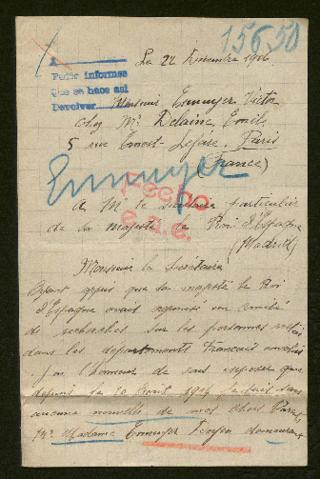 15650
A
Pedir informes
Que se hace así
Devolver
Le 22 Décembre 1916
Monsieur Ennuyer Victor
chez Mr. Delaine Emile
5 rue Ernest Lefèvre. Paris
(France)
Ennuyer
Fecho
A M. le Secrétaire particulier
de la majesté le Roi d'Espagne
(Madrid)
Monsieur le Secrétaire
Ayant appris que sa majesté le Roi
d'Espagne avait organisé un comité
de recherches sur les personnes restées
dans les départements Français envahis
J'ai l'honneur de vous exposer que
depuis le 20 Août 1914 je suis sans
aucune nouvelle de mes chers Parents
Mr. Madame Ennuyer demeurant